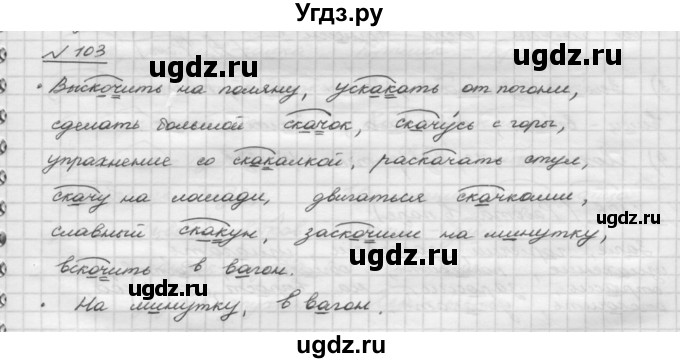 Угдз.ру
№ 103
ugdz.ru
• Выскочить на поляну, ускакать от погони,
ugdz.ru
сделать большой скачок, скачусь с горы,
ugdz.ru
упражнение со скакалкой, раскачать стул,
ugdz.ru
скачу на лошади, двигаться скачками,
ugdz.ru
славный скакун, заскочили на минутку,
ugdz.ru
вскочить в вагон.
ugdz.ru
ugdz.ru
• На минутку, в вагон.
ugdz.ru
Угдз.ру